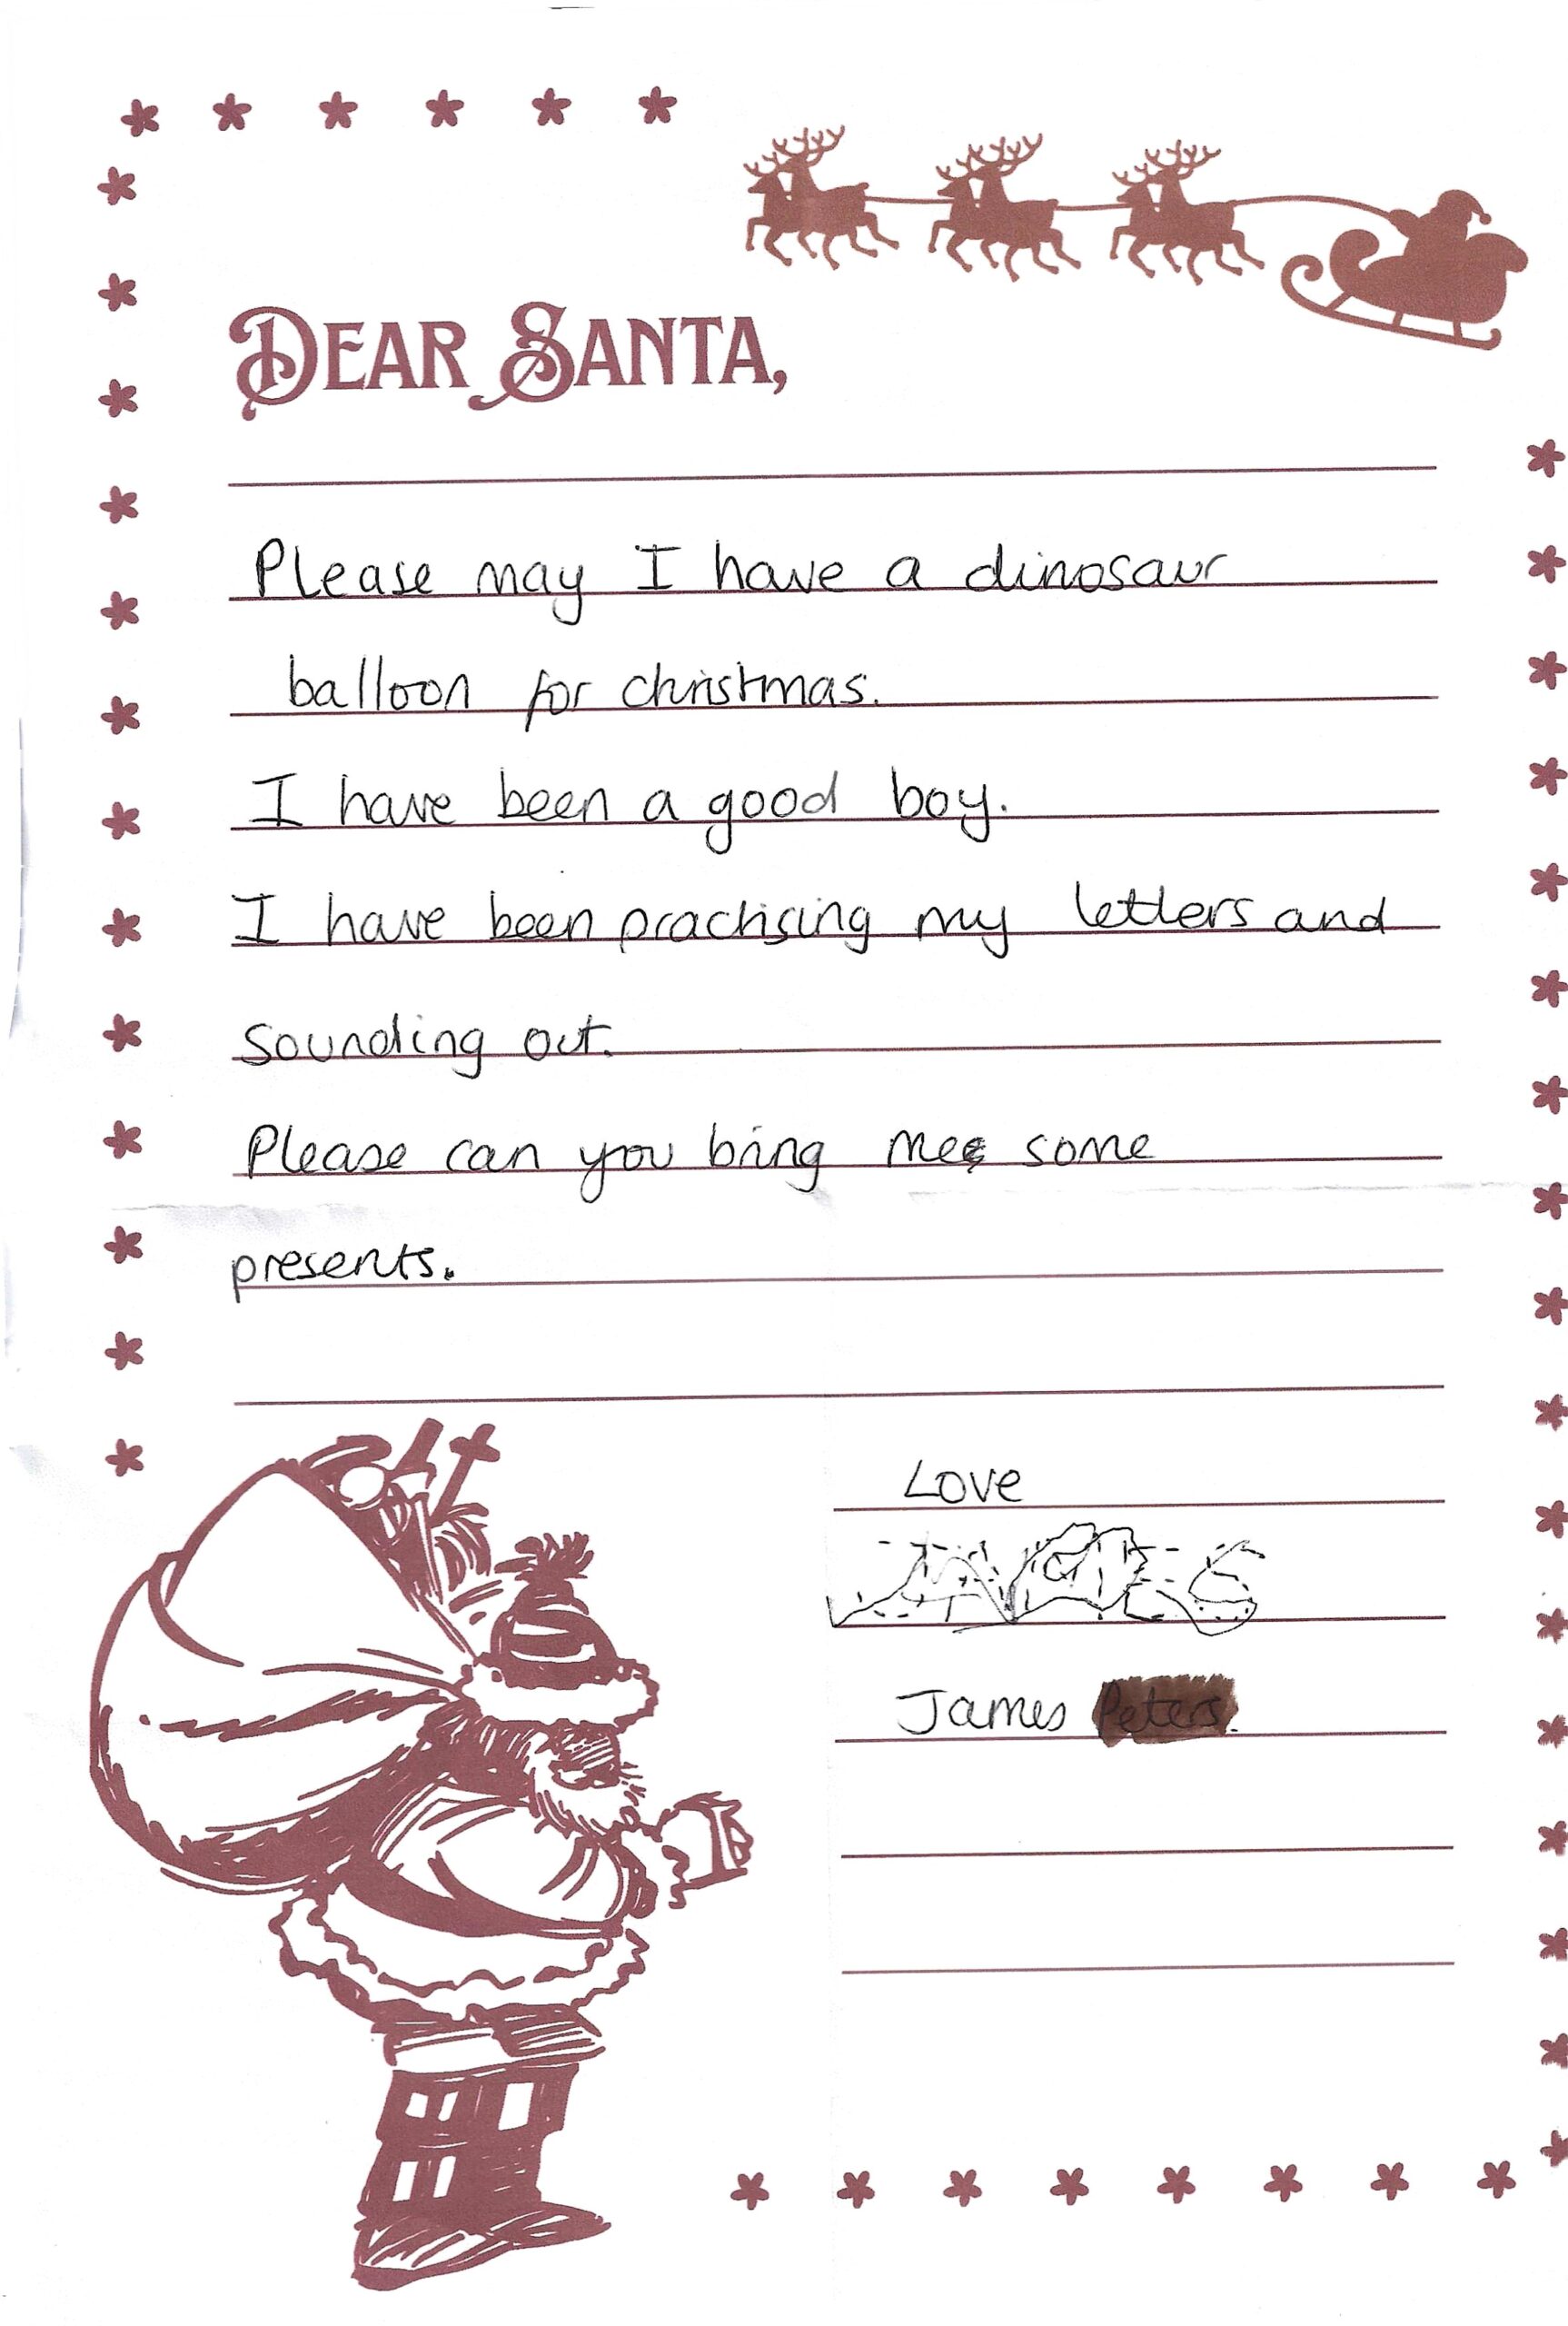 DEAR SANTA,
Please may I have a dinosaur
balloon for christmas.
I have been a good boy.
I have been practising my letters and
sounding out.
Please can you bring me some
presents.
Love
JAMES
James